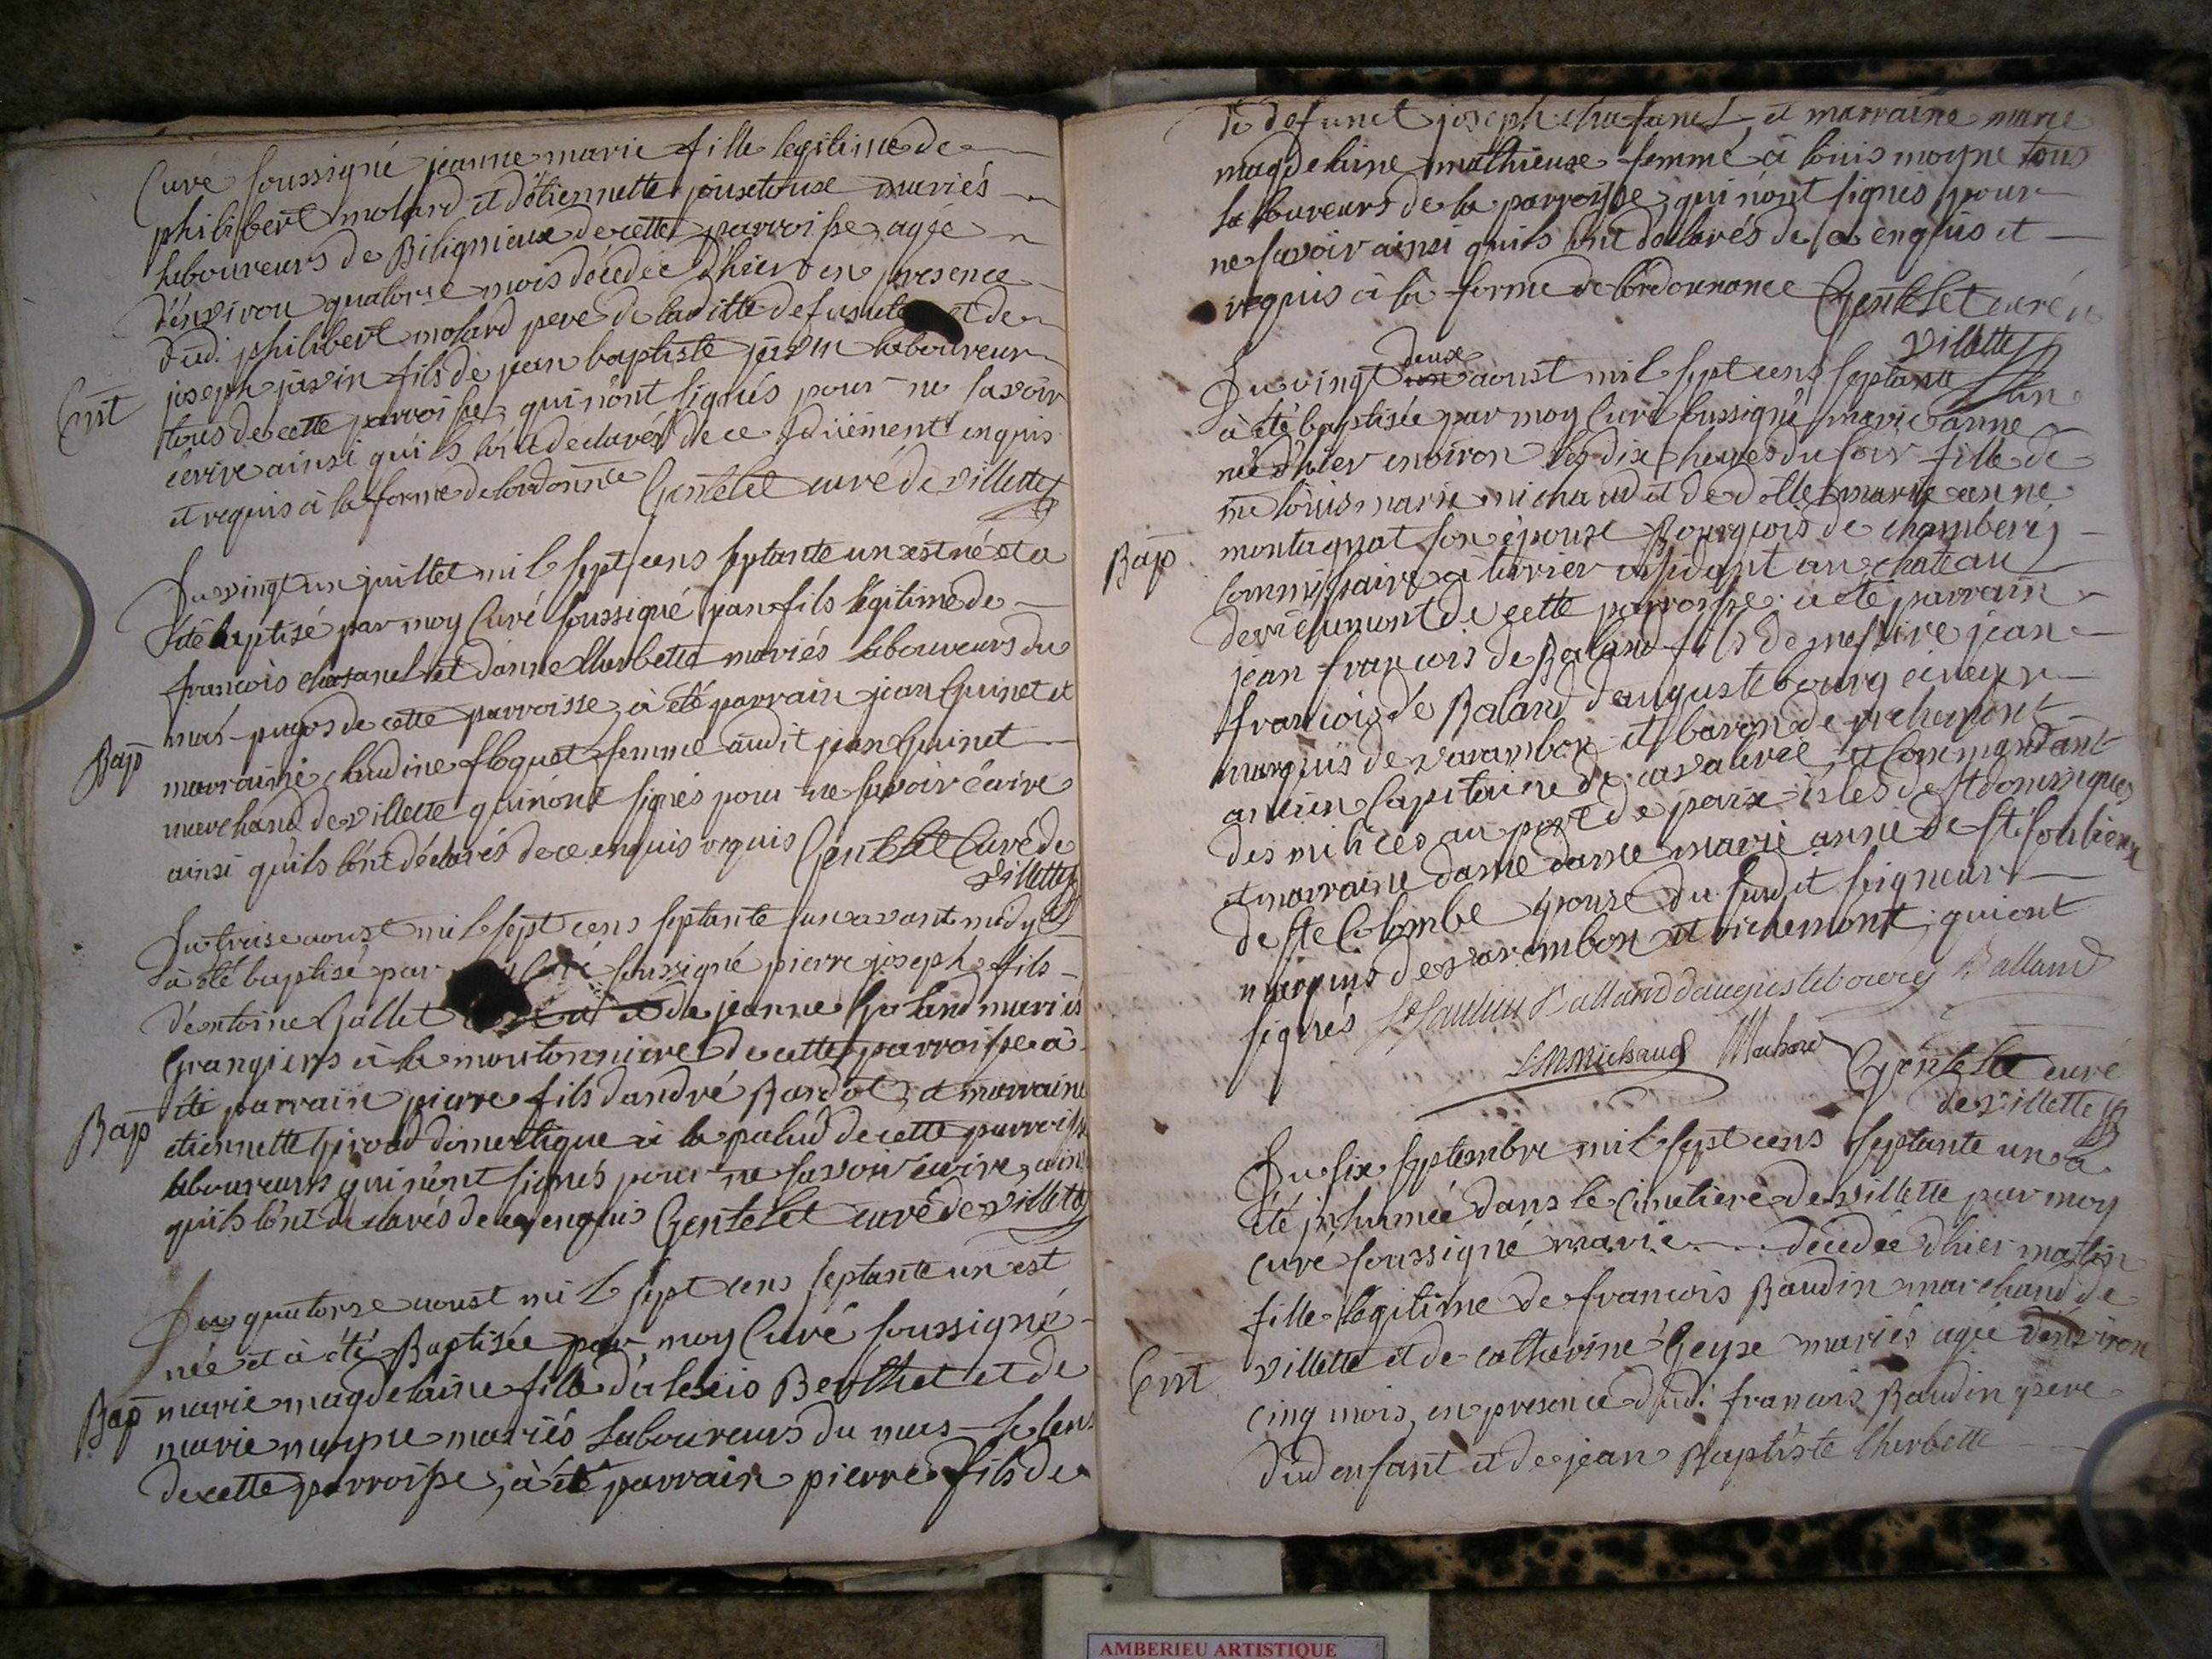 Curé soussigné jeanne marie fille legitime de
philibert molard et d'étiennette mariés
laboureurs de Bilignieux de cette parroisse agée
d'énviron quatorse mois décedée d'hier en presence
dud. philibert molard pere de laditte defunte et de
joseph javin fils de jean baptiste javin laboureur
Ent
tous de cette parroisse, qui n'ont signés pour ne savoir
écrire ainsi qu'ils l'ont declarés de ce enquis
et requis à la forme de lordonnce Gentelet curé de villette
Du vingt un juillet mil sept cens septante un est né et a
été baptisé par moy Curé soussigné jean fils légitime de
francois chafanel et d'anne lherbette mariés laboureurs du
mas pugos de cette parroisse, à été parrain jean Guinet et
Bap
marraine claudine floquet femme audit jean Guinet
marchand de villette qui n'ont signés pour ne savoir écrire
ainsi qu'ils l'ont déclarés de ce enquis requis Gentelet Curé de
villette
Du treise aoust mil sept cens septante un avant midy
à été baptisé par Curé soussigné pierre joseph fils
d'entoine Gallet et de jeanne Goland mariés
Grangiers à la moutonniere de cette parroisse à
Bap
été parrain pierre fils d'andré Bardot, et marraine
étiennette Giroud domestique à la palud de cette parroisse
laboureurs qui n'ont signés pour ne savoir écrire, ainsi
qu'ils l'ont declarés de ce enquis Gentelet curé de villette
Du quatorse aoust mil sept cens septante un est
née et à été Baptisée par moy Curé soussigné
Bap
marie magdelaine fille d'alexis Berthet et de
marie moyne mariés Laboureurs du mas
de cette parroisse, à été parrain pierre fils de
de defunct joseph chafanel et marraine marie
magdelaine mathieuse femme à louis moyne tous
laboureurs de la parroisse, qui n'ont signés pour
ne savoir ainsi qu'ils l'ont declarés de ce enquis et
requis à la forme de lordonnance Gentelet curé
villette
Du vingt deux aoust mil sept cens septante un
à été baptisée par moy Curé soussigné marie anne
née d'hier environ les dix heures du soir fille de
me louis marie michaud et de dlle marie anne
Bap
montagnat son épouse Bourgois de chamberi
Commissaire à terrier residant au chateau
de richemont de cette parroisse. à été parrain
jean francois de Baland fils de messire jean
francois de Baland d'augustebourg écuyer
marquis de varambon et baron de richemont
ancien Capitaine de cavalerie, et Commandant
des milices au port de paix isles de st domingue
et marraine dame marie anne de st
de ste Colombe épouse du susdit seigneur
marquis de varembon et richemont, qui ont
signés Balland daugustebourg Balland
LM Michaud Gentelet curé
de villette
Du six septembre mil sept cens septante un à
été inhumée dans le cimetiere de villette par moy
curé soussigné marie decedée d'hier matin
fille légitime de francois Baudin marchand de
Ent
villette et de catherine mariés agée d'énviron
cinq mois, en presence dud. francois Baudin pere
dud enfant et de jean Baptiste lherbette
AMBERIEU ARTISTIQUE